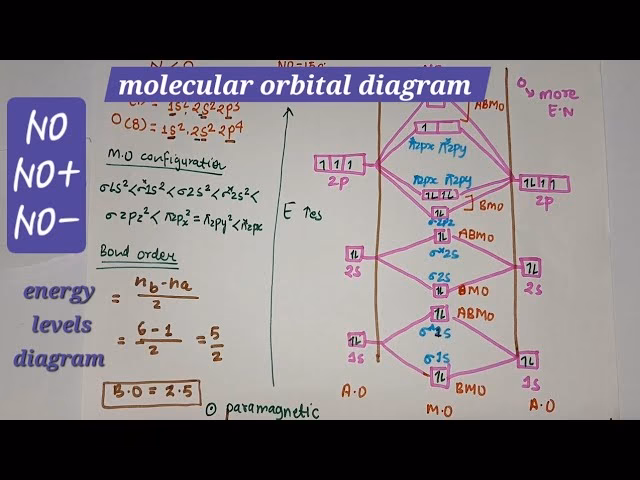 molecular orbital diagram
NO
NO+
NO-
energy
levels
diagram
1s², 2s² 2p³
O(8) = 1s², 2s² 2p⁴
M.O configuration
σ1s² < σ*1s² < σ2s² < σ*2s² <
σ2pz² < π2px² = π2py² < π*2px
Bond order
= nb - na / 2
= 6-1 / 2 = 5 / 2
B.O = 2.5
⊙ paramagnetic
E ↑es
O more
E.N
ABMO
1
π*2px π*2py
1 1 1
2p
π2px π2py
1L 1L
BMO
1L
σ2pz
1L 1 1
2p
1L
ABMO
σ*2s
1L
2s
σ2s
1L
BMO
1L
2s
1L
ABMO
σ*1s
1L
1s
σ1s
1L
BMO
1L
1s
A.O
M.O
A.O